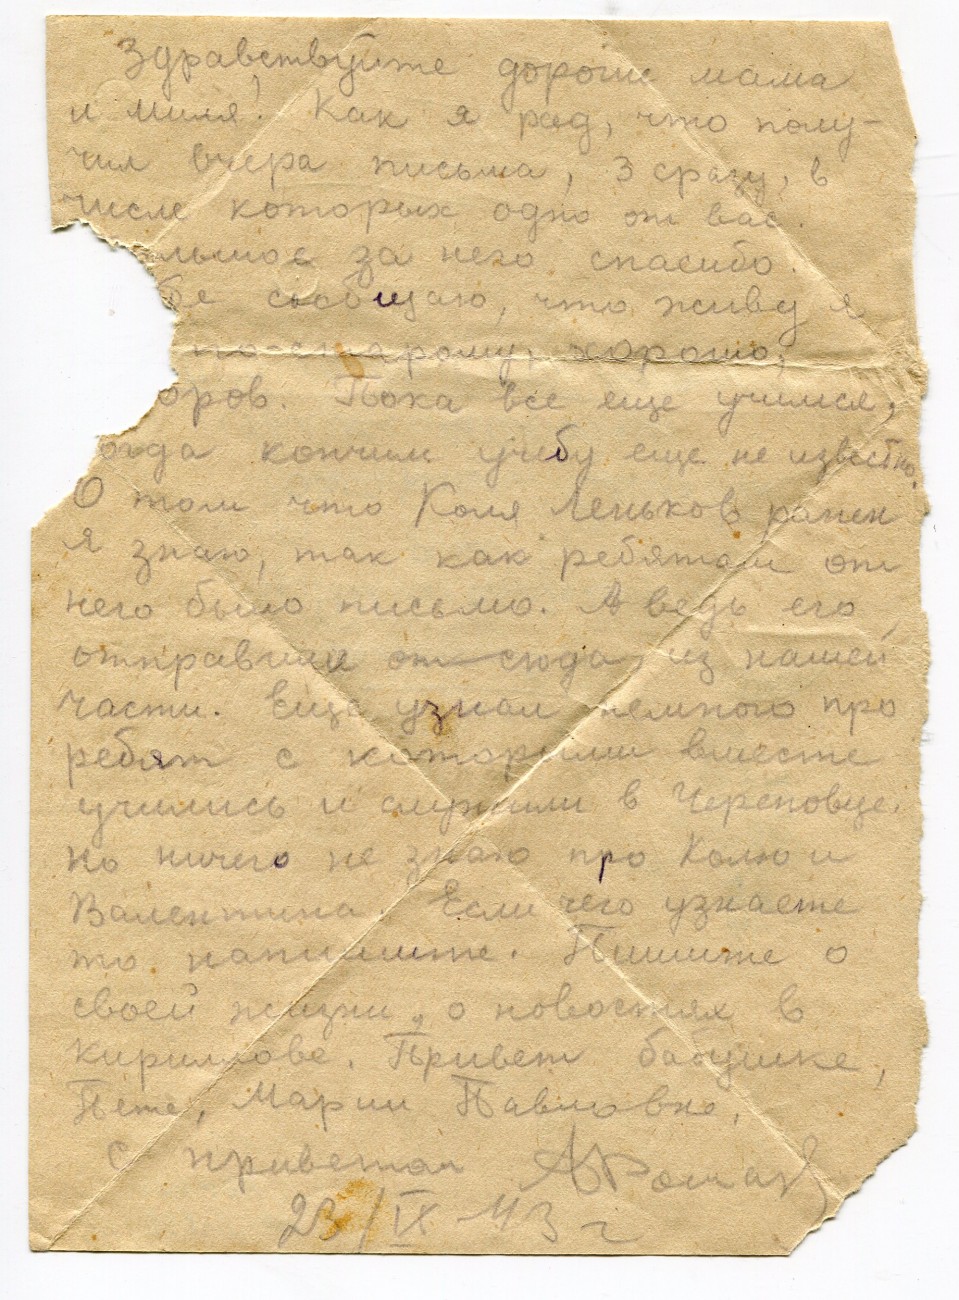 Здравствуйте дорогие мама
и Миля! Как я рад, что полу-
чил вчера письма, 3 сразу, в
числе которых одно от вас.
льшое за него спасибо.
бе сообщаю, что живу я
по-старому, хорошо,
оров. Пока все еще учимся,
огда кончим учебу еще не известно.
О том что Коля Леньков ранен
я знаю, так как ребятам от
него было письмо. А ведь его
отправили от сюда, из нашей
части. Еще узнал немного про
ребят с которыми вместе
учились и служили в Череповце.
Но ничего не знаю про Колю и
Валентина. Если чего узнаете
то напишите. Пишите о
своей жизни, о новостях в
Кириллове. Привет бабушке,
Пете, Марии Павловне.
С приветом
23/IX-43 г